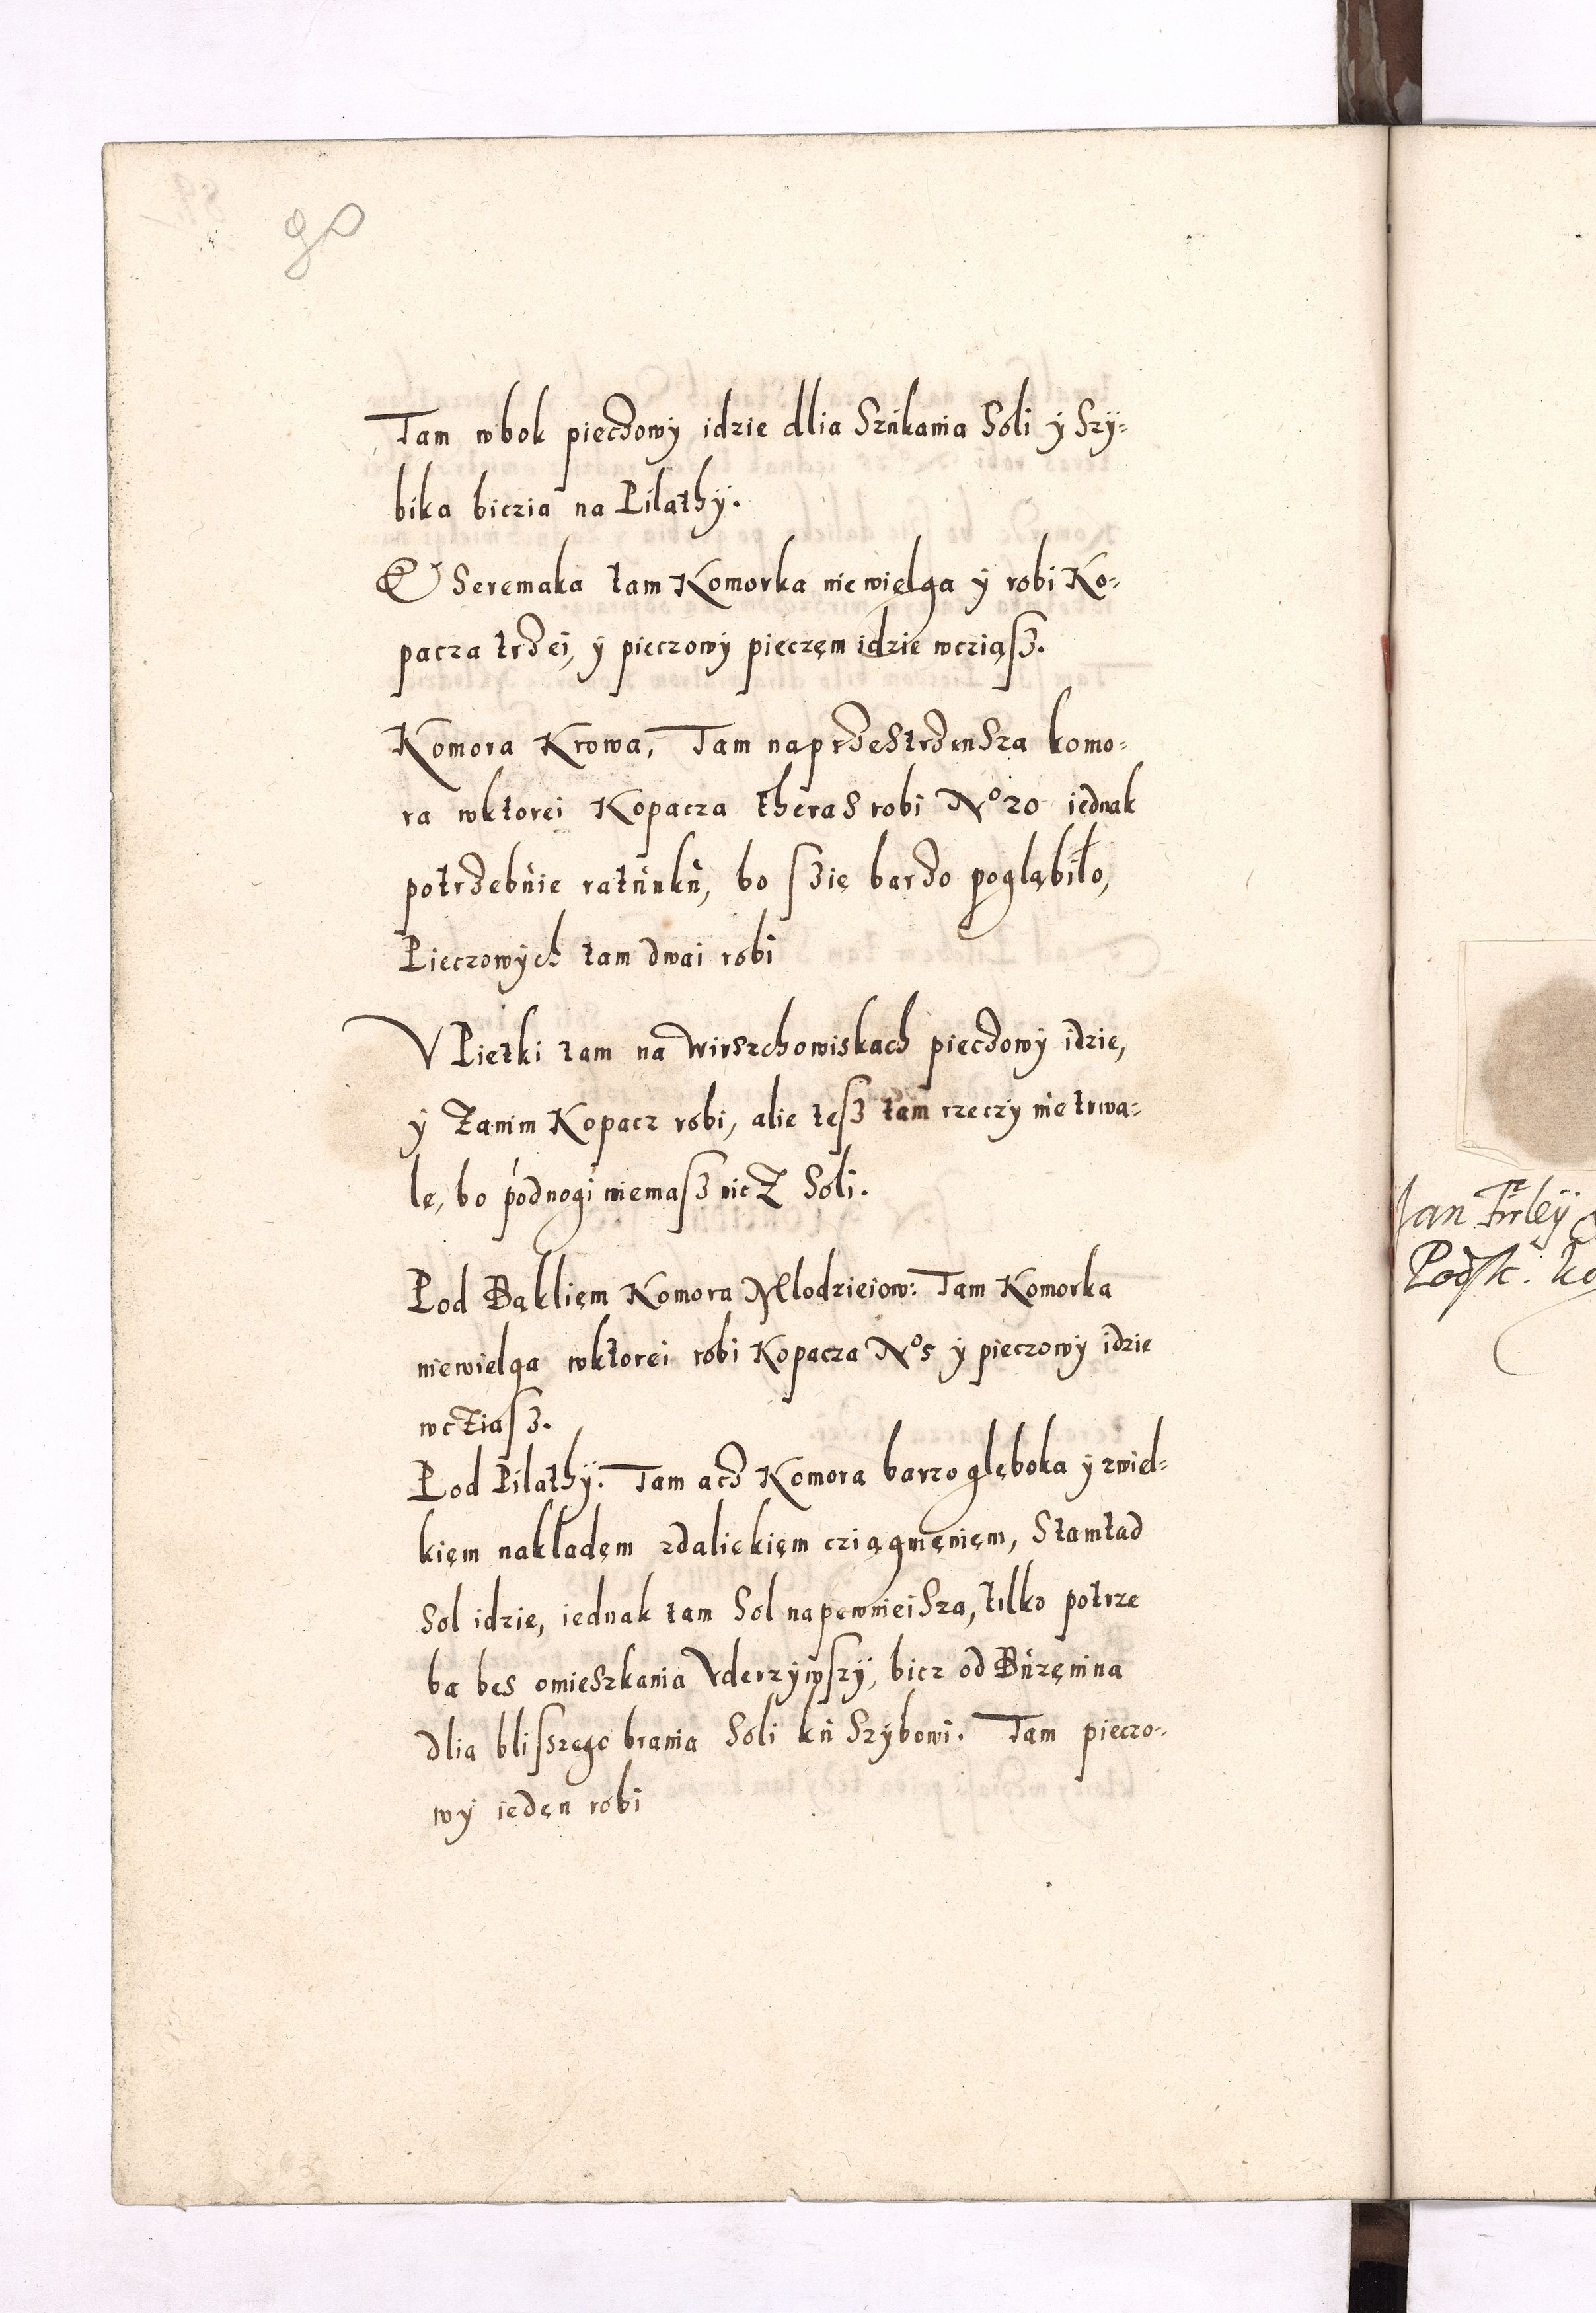 90
Tam wbok pieczowy idzie dlia Szukania Soli ÿ Szÿ-
bika biczia na Pilathÿ.
U Seremaka tam Komorka niewielga ÿ robi Ko-
pacza trzei, ÿ pieczowÿ pieczęm idzie wcziąsz.
Komora Krowa, Tam naprzestrzensza komo-
ra wktorei Kopacza theras robi No 20 iednak
potrzebnie ratunku, bo szię barzo pogląbiło,
Pieczowÿch tam dwai robi
V Pietki tam na Wirszchowiskach pieczowÿ idzie,
ÿ Zanim Kopacz robi, alie tesz tam rzeczÿ nietrwa-
le, bo podnogi niemasz nic Z Soli.
Pod Bąkliem Komora Mlodzieiow: Tam Komorka
niewielga wktorei robi Kopacza No 5 ÿ pieczowÿ idzie
wcZiasz.
Pod Pilathÿ. Tam acz Komora barzo głęboka ÿ zwiel-
kięm nakładęm zdaliekięm cziągnęnięm, Stamtad
Sol idzie, iednak tam Sol napewnieisza, tilko potrze
ba bes omieszkania Vderzÿwszÿ, bicz od Bużenina
dlia bliszszego brania Soli ku Szÿbowi. Tam pieczo-
wÿ iedęn robi
Jan Firleÿ
Podsk.